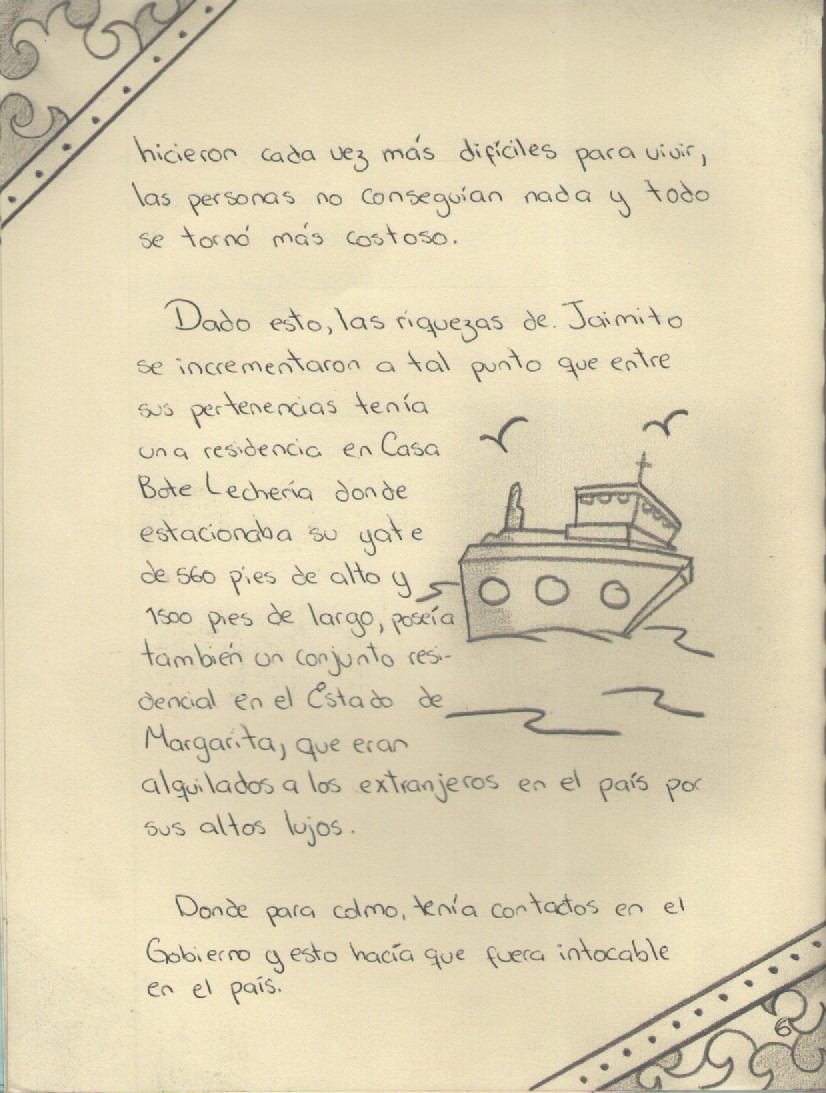 hicieron cada vez más difíciles para vivir,
las personas no conseguían nada y todo
se tornó más costoso.
Dado esto, las riquezas de. Jaimito
se incrementaron a tal punto que entre
sus pertenencias tenía
una residencia en Casa
Bote Lechería donde
estacionaba su yate
de 560 pies de alto y
1500 pies de largo, poseía
también un conjunto resi-
dencial en el Estado de
Margarita, que eran
alquilados a los extranjeros en el país por
sus altos lujos.
Donde para colmo, tenía contactos en el
Gobierno y esto hacía que fuera intocable
en el país.
6